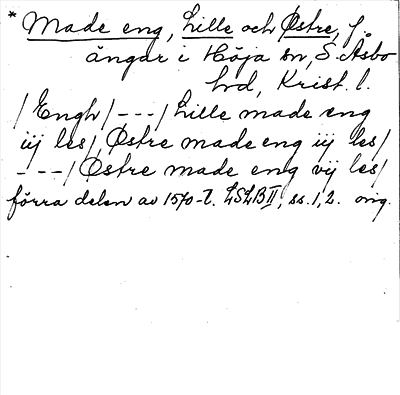 * Made eng, Lille och Østre, f.
ängar i Höja sn, S. Åsbo
hd, Krist. l.
/Engh/---/Lille made eng
iij les/, Østre made eng iij les/
---/Østre made eng vij les/
förra delen av 1570-t. LSLB II, ss. 1, 2. orig.